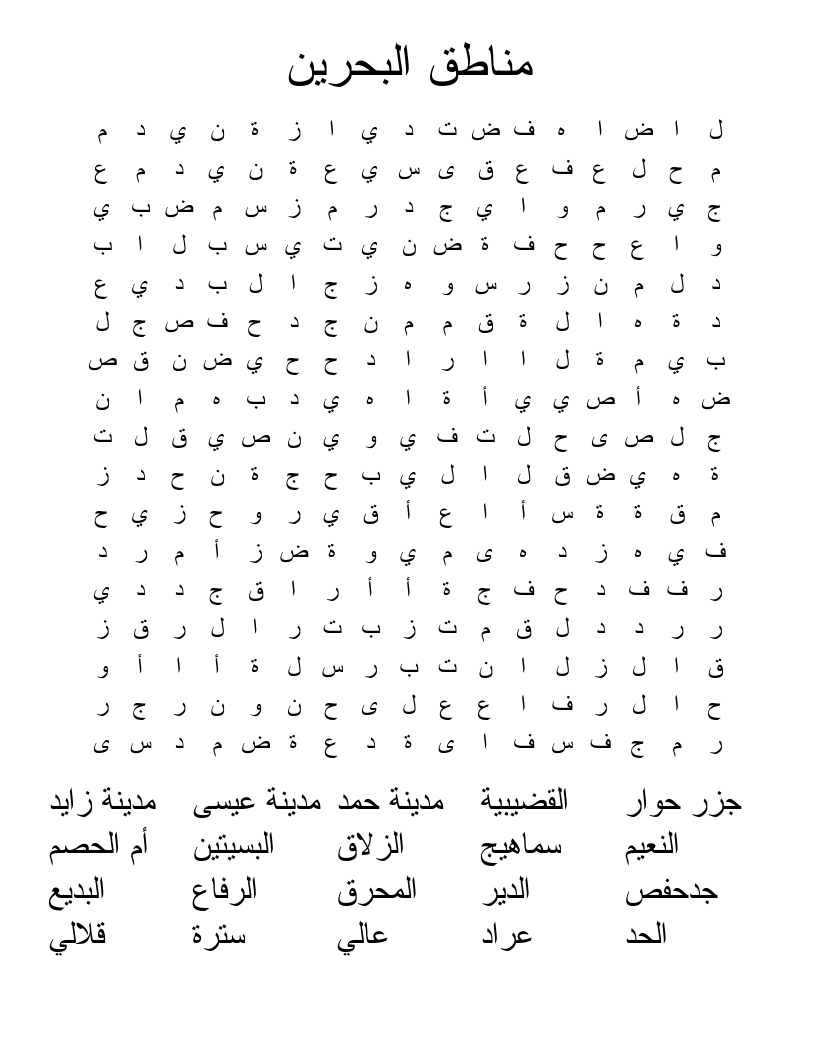 مناطق البحرين
ل ا ض ا ه ف ض ت د ي ا ز ة ن ي د م
م ح ل ع ف ع ق ى س ي ع ة ن ي د م ع
ج ي ر م و ا ي ج د ر م ز س م ض ب ي
و ا ع ح ح ف ة ض ن ي ت ي س ب ل ا ب
د ل م ن ز ر س و ه ز ج ا ل ب د ي ع
د ة ه ا ل ة ق م م ن ج د ح ف ص ج ل
ب ي م ة ل ا ا ر ا د ح ح ي ض ن ق ص
ض ه أ ص ي ي أ ة ا ه ي د ب ه م ا ن
ج ل ص ى ح ل ت ف ي و ي ن ص ي ق ل ت
ة ه ي ض ق ل ا ل ي ب ح ج ة ن ح د ز
م ق ة ة س أ ا ع أ ق ي ر و ح ز ي ح
ف ي ه ز د ه ى م ي و ة ض ز أ م ر د
ر ف ف د ح ف ج ة أ أ ر ا ق ج د د ي
ر ر د د ل ق م ت ز ب ت ر ا ل ر ق ز
ق ا ل ز ل ا ن ت ب ر س ل ة أ ا أ و
ح ا ل ر ف ا ع ع ل ى ح ن و ن ر ج ر
ر م ج ف س ف ا ى ة د ع ة ض م د س ى
جزر حوار القضيبية مدينة حمد مدينة عيسى مدينة زايد
النعيم سماهيج الزلاق البسيتين أم الحصم
جدحفص الدير المحرق الرفاع البديع
الحد عراد عالي سترة قلالي